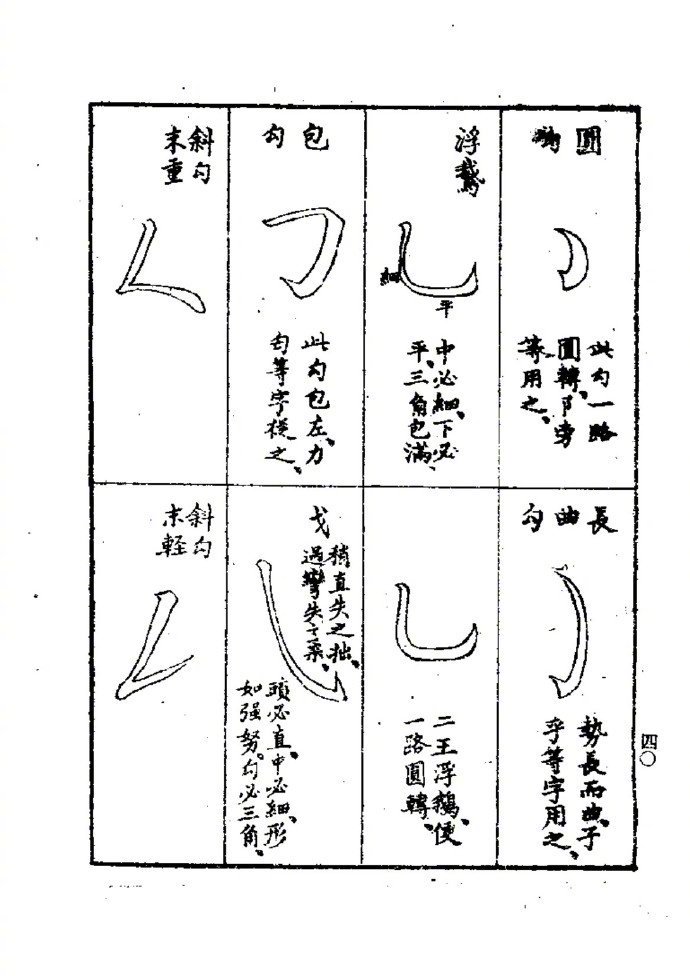 圓鈎
此勾一路
圓轉、阝旁
等用之、
浮鵞
細
平
中必細、下必
平、三角包滿、
包勾
此勾包左、力
勻等字從之、
斜勾
末重
長曲勾
勢長而曲、子
乎等字用之、
二王浮鵝、便
一路圓轉、
戈
稍直失之拙、
過彎失之柔、
頭必直、中必細、形
如强努。勾必三角、
斜勾
末軽
四〇